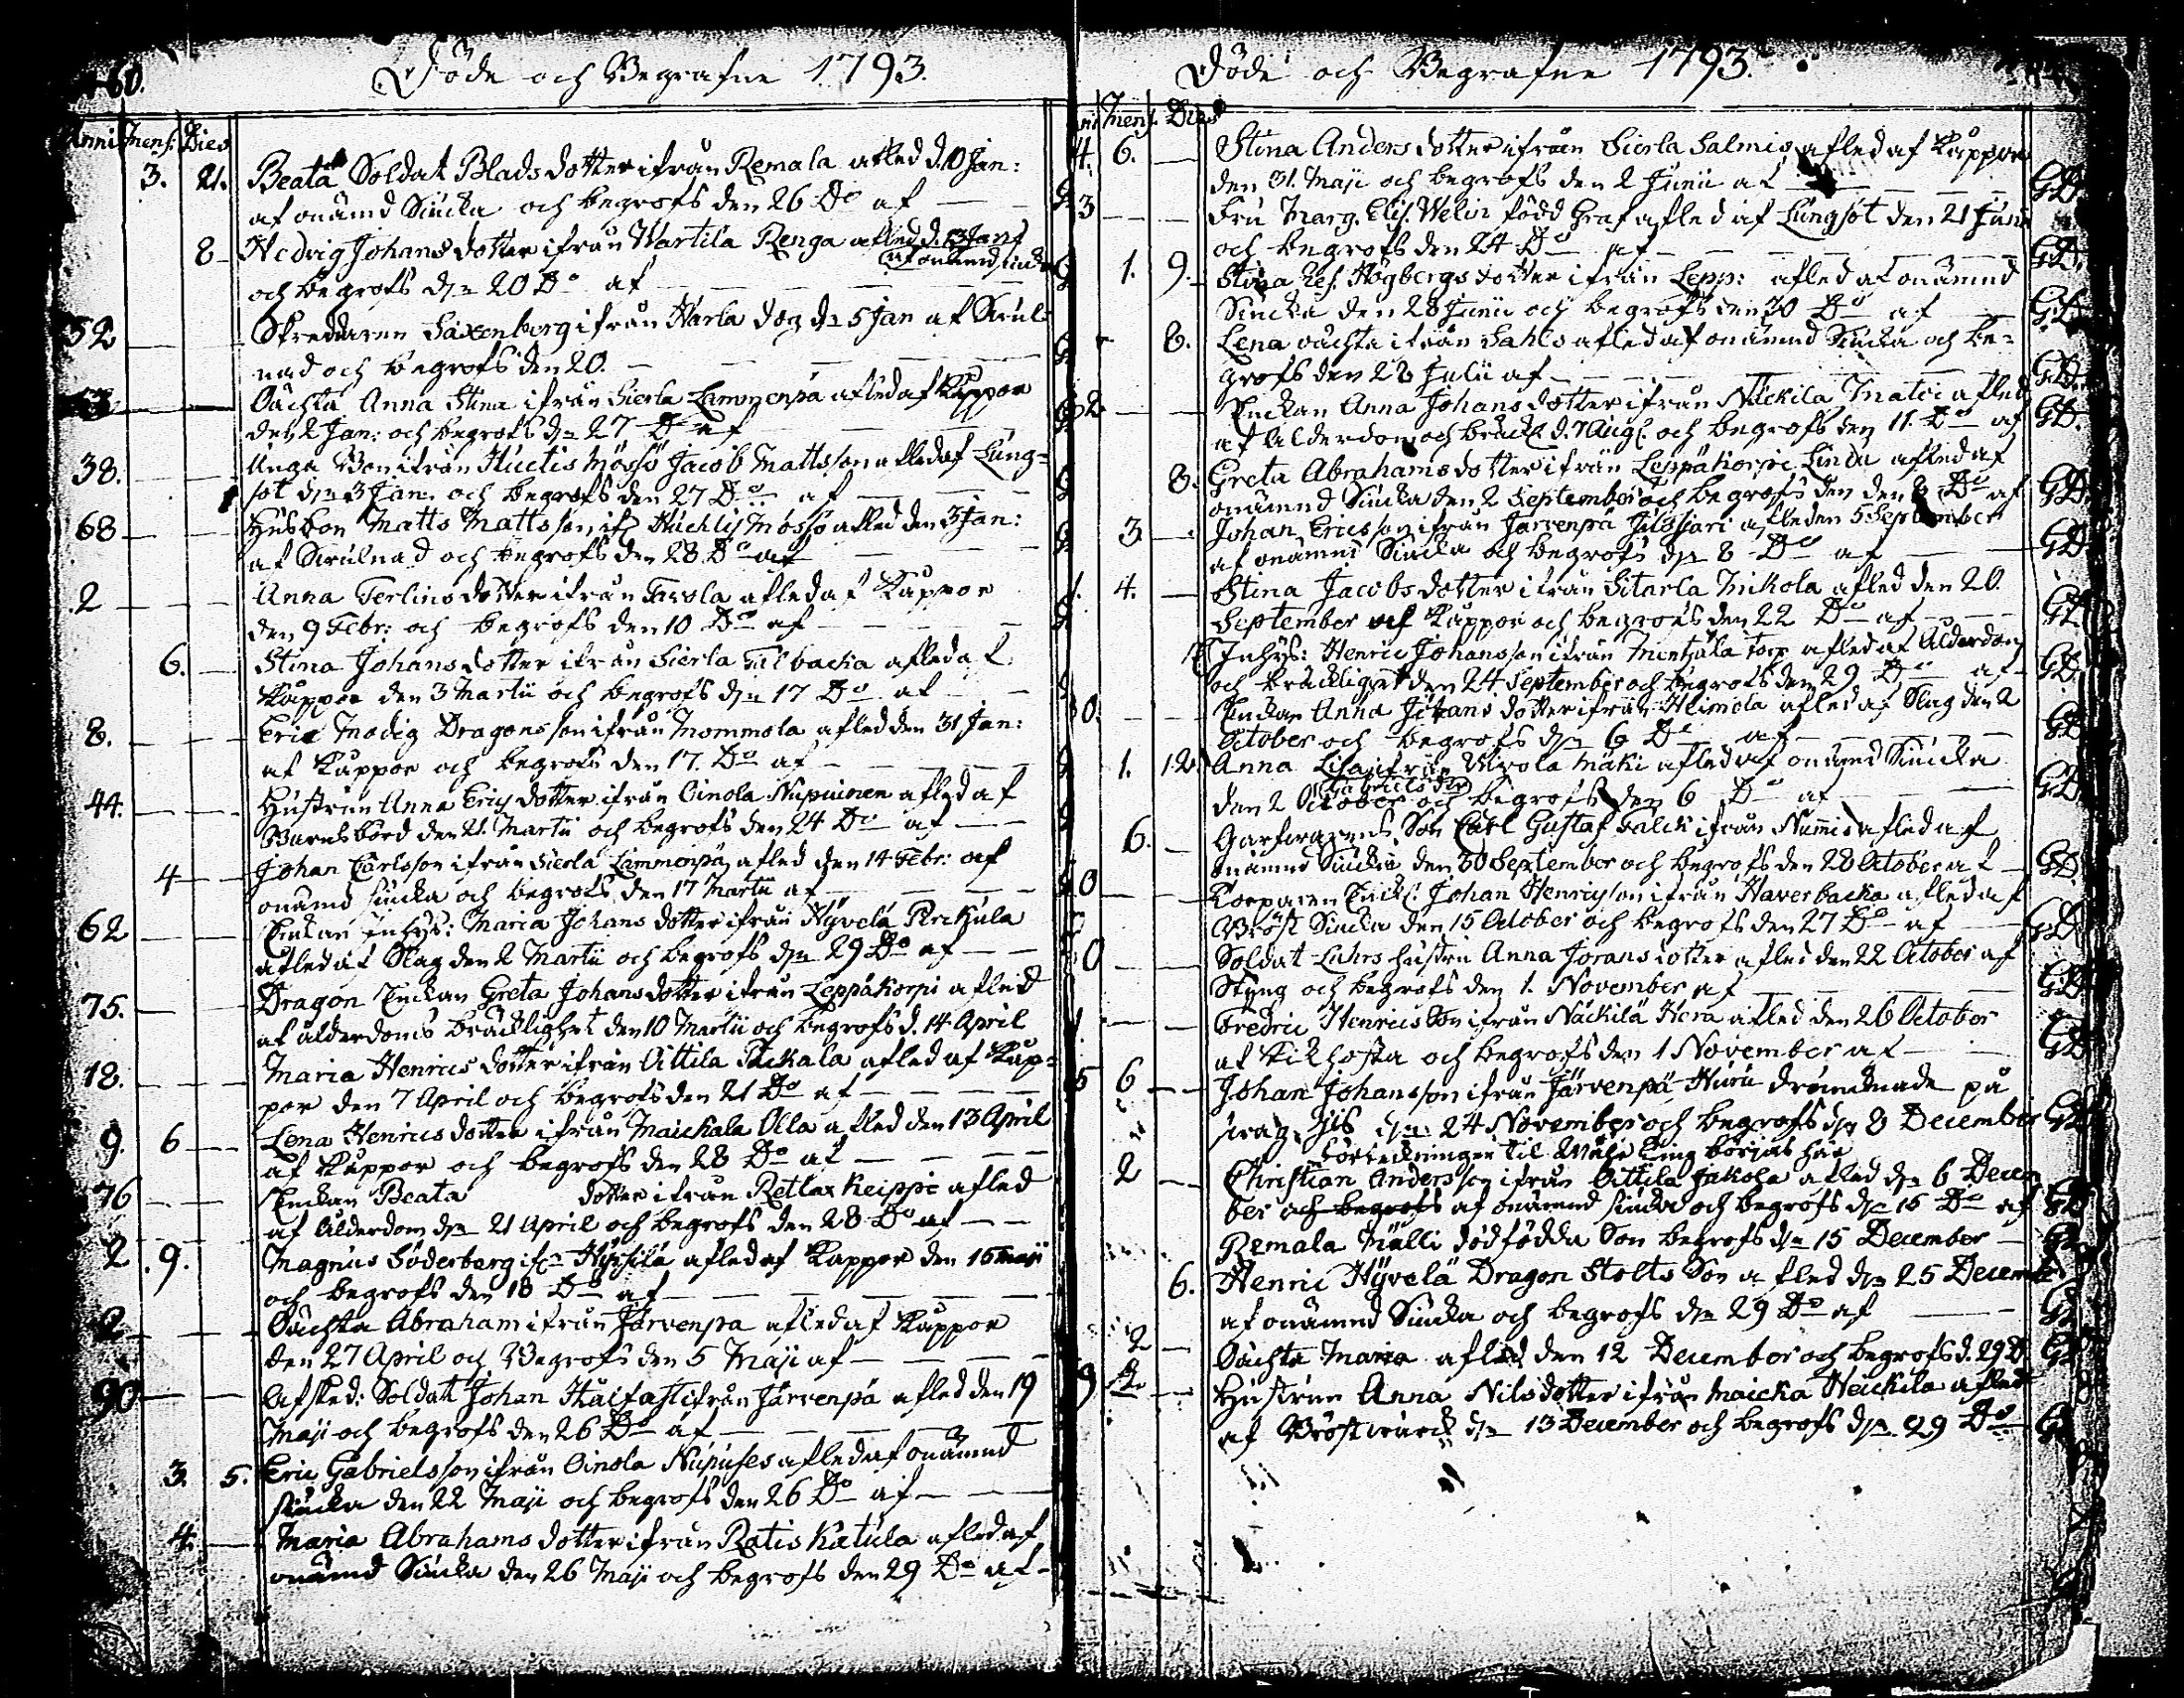 60.
Döde och Begrafne 1793.
Anni Mens. Dies
3. 21. Beata Soldat Blads dotter ifrån Remala afled d. 10 Jan:
af onämd Siucka och begrofs den 26 Do af
8 Hedvig Johans dotter ifrån Wartila Renga afled d. 13 Jan
af onämnd siucka
och begrofs dn 20 Do af
52 Skreddaren Saxenberg ifrån Harla dog dn 5 Jan af Swul-
nad och begrofs den 20.
Oächta Anna Stina ifrån Sierla Lammenpä afled af Kåppor
den 2 Jan: och begrofs dn 27 Do af
38. Unga Bon ifrån Huctis Mössö Jacob Mattsson afled af Lung-
sot dn 3 Jan. och begrofs den 27 Do af
68 Husbon Matts Mattsson if. Huchtis Mössö afled den 3 Jan:
af Swulnad och begrofs den 28 Do af
2 Anna Terlins dotter ifrån afled af Kåppor
den 9 Febr: och begrofs den 10 Do af
6. Stina Johans dotter ifrån Sierla Talbacka afled af
Kåppor den 3 Martii och begrofs dn 17 Do af
8. Eric Modig Dragons son ifrån Mommola afled den 31 Jan:
af Kåppor och begrofs den 17. Do af
44. Hustrun Anna Erics dotter ifrån Oinola Nupuinen afled af
Barnsbörd den 21. Martii och begrofs den 24 Do af
4 Johan Carlsson ifrån Sierla Lammenpä afled den 14 Febr: af
onämd siucka och begrofs den 17 Martii af
62 Enckan Inhys: Maria Johans dotter ifrån Hyvelä Pirkjula
afled af Slag den 2 Martii och begrofs dn 29 Do af
75. Dragon Enckan Greta Johans dotter ifrån Leppäkorpi afled
af ålderdoms bräcklighet den 10 Martii och begrofs d. 14 April
18. Maria Henrics dotter ifrån Oittila Päckala afled af Kåp-
por den 7 April och begrofs den 21 Do af
9. 6 Lena Henrics dotter ifrån Maickala Olla afled den 13 April
af Kåppor och begrofs den 28 Do af
76 Enckan Beata dotter ifrån Retlax Keippi afled
af Ålderdom dn 21 April och begrofs den 28 Do af
2 9. Magnus Söderberg if. Hyrsilä afled af Kåppor den 16 Maji
och begrofs den 18 Do af
2 Oächta Abraham ifrån Järvenpä afled af Kåppor
den 27 April och Begrofs den 5 Maji af
90 Afsked: Soldat Johan ifrån Järvenpä afled den 19
Maji och begrofs den 26 Do af
3. 5. Eric Gabrielsson ifrån Oinola Nupuses afled af onämnd
siucka den 22 Maji och begrofs den 26 Do af
4. Maria Abrahams dotter ifrån Ratis Katula afled af
onämd Siucka den 26 Maji och begrofs den 29 Do af
Döde och Begrafne 1793.
Mens. Dies
4. 6. Stina Anders dotter ifrån Sierla Salmis afled af Kåppor
den 31. Maji och begrofs den 2 Junii af GD
3 Fru Marg. Elis. Welin född Graf afled af Lungsot den 21 Junii
och begrofs den 24 Do af GD.
1. 9. Stina Res. Högbergs dotter ifrån Lepp: afled af onämnd
Siucka den 28 Junii och begrofs den 30 Do af GD
8. Lena oächta ifrån Sahls afled af onämnd Siucka och be-
grofs den 28 Julii af GD
2. Enckan Anna Johans dotter ifrån Näckila Matti afled
af Ålderdom och bräckl. d. 7 Aug. och begrofs den 11. Do af GD.
8. Greta Abrahams dotter ifrån Leppäkorpi Sinda afled af
onämnd Siucka den 2 September och begrofs den den 8 Do af GD
3 Johan Ericsson ifrån Järvenpä afled den 5 September
af onämnd Siucka och begrofs dn 8 Do af GD
4. Stina Jacobs dotter ifrån Sitarla Mikola afled den 20.
September af Kåppor och begrofs den 22 Do af GD
Inhys: Henric Johansson ifrån Mentjäla torp afled af Ålderdom
och bräcklighet den 24 September och begrofs den 29 Do af GD
0. Enckan Anna Johans dotter ifrån Heimola afled af Slag den 2
October och begrofs dn 6 Do af GD
1. 12 Anna Lisa ifrån Ukola Mäki afled af onämnd Siucka
Gabriels dtr
den 2 October och begrofs den 6 Do af GD
6. Garfwarens Son Carl Gustaf Falck ifrån Nummis afled af
onämnd Siucka den 30 September och begrofs den 28 October af GD
0 Torparen Johan Henricsson ifrån Haverbacka afled af
Bröst Siucka den 15 October och begrofs den 27 Do af GD
0 Soldat Luhrs hustru Anna Jörans dotter afled den 22 October af
Styng och begrofs den 1. November af GD
Fredric Henrics Son ifrån Näckilä Hera afled den 26 October
af Kikhosta och begrofs den 1 November af GD
5 6 Johan Johansson ifrån Järvenpä Huru drunknade på
swag Jis dn 24 November och begrofs dn 8 December GD
förteckningen til börjas här
2 Christian Andersson ifrån Oittila Jakola afled dn 6 Decem
ber och begrofs af onämnd siucka och begrofs dn 15 Do af GD
Remala Mälli dödfödda Son begrofs dn 15 December
6. Henric Hyvelä Dragon Stolts Son afled dn 25 Decemb
af onämnd Siucka och begrofs dn 29 Do af
2 Oächta Maria afled den 12 December och begrofs d. 29 D
9 Hustrun Anna Nils dotter ifrån Maicka Heickila afled
af Bröstwärck dn 13 December och begrofs dn 29 Do